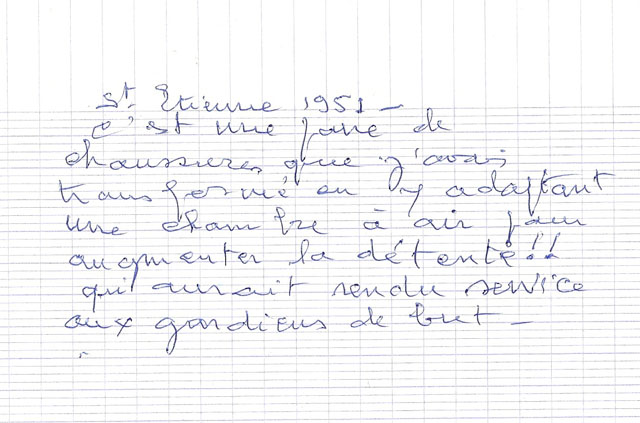 St Etienne 1951 -
C'est une paire de
chaussures que j'avais
transformé en y adaptant
une chambre à air pour
augmenter la détente!!
qui aurait rendu service
aux gardiens de but -